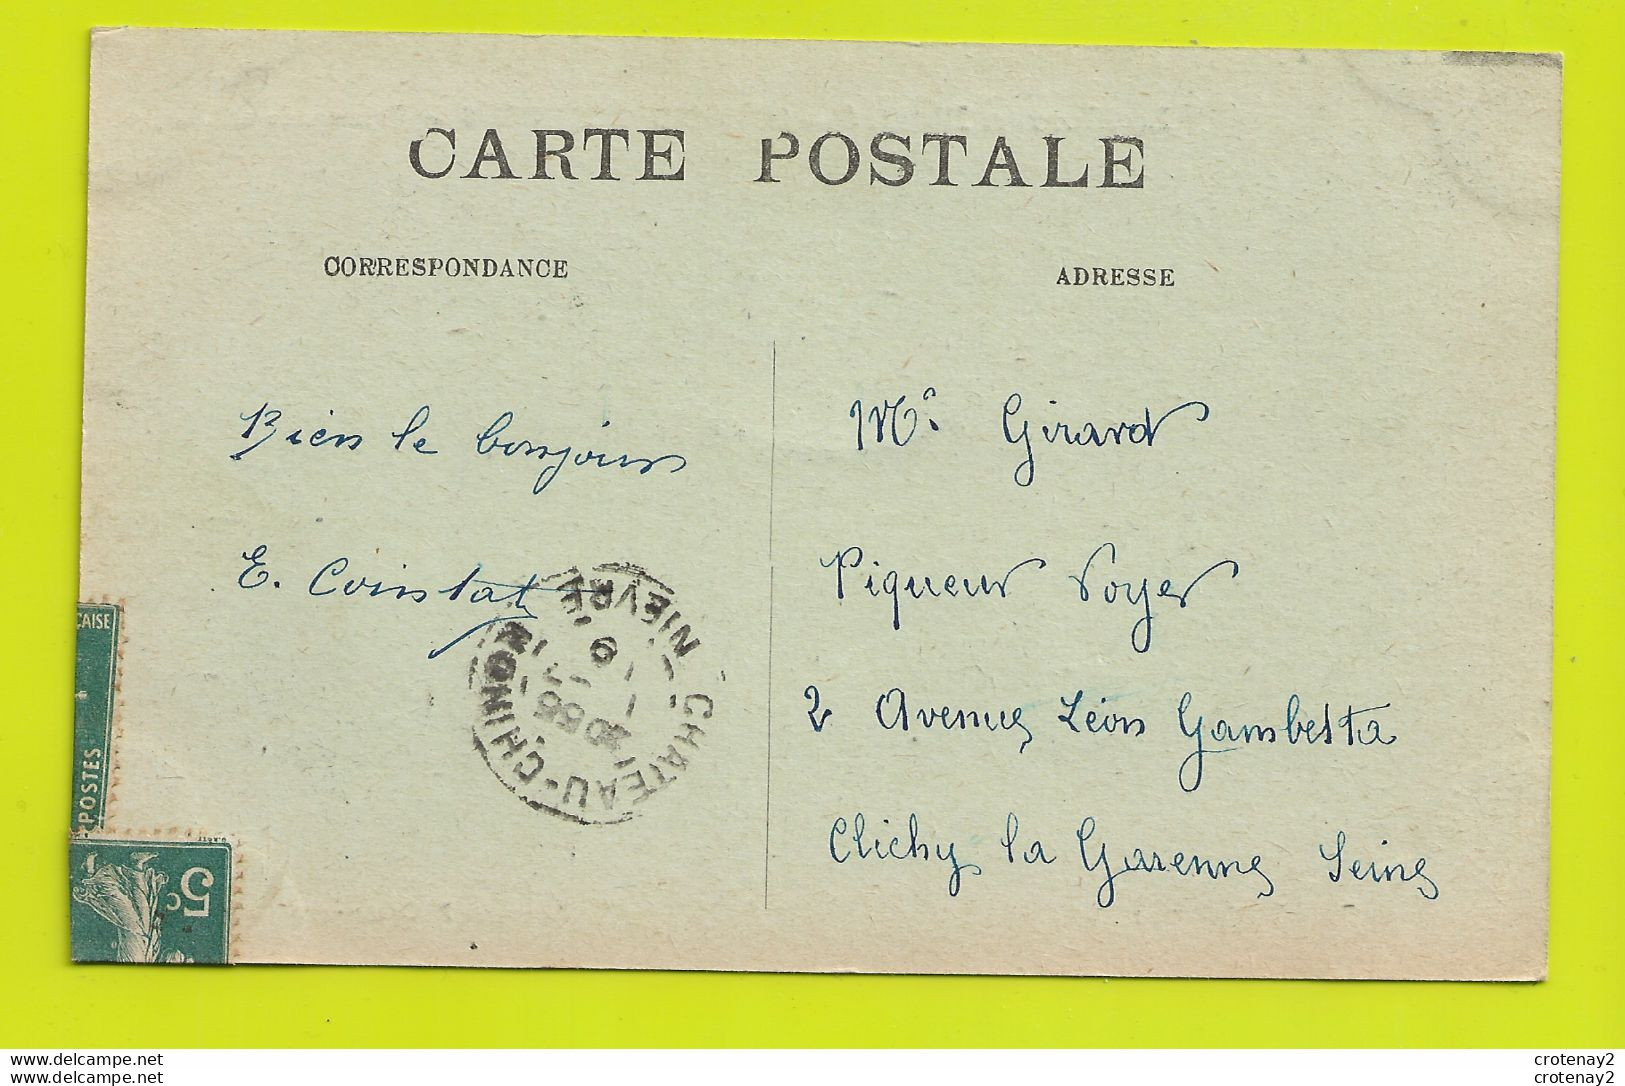 CARTE POSTALE
CORRESPONDANCE
ADRESSE
Bien le bonjour
E. Cointat
Mr. Girard
Piqueur Voyer
2 Avenue Léon Gambetta
Clichy la Garenne Seine
CHATEAU-CHINON
NIEVRE
CAISE
POSTES
5c
www.delcampe.net
www.delcampe.net
crotenay2
crotenay2